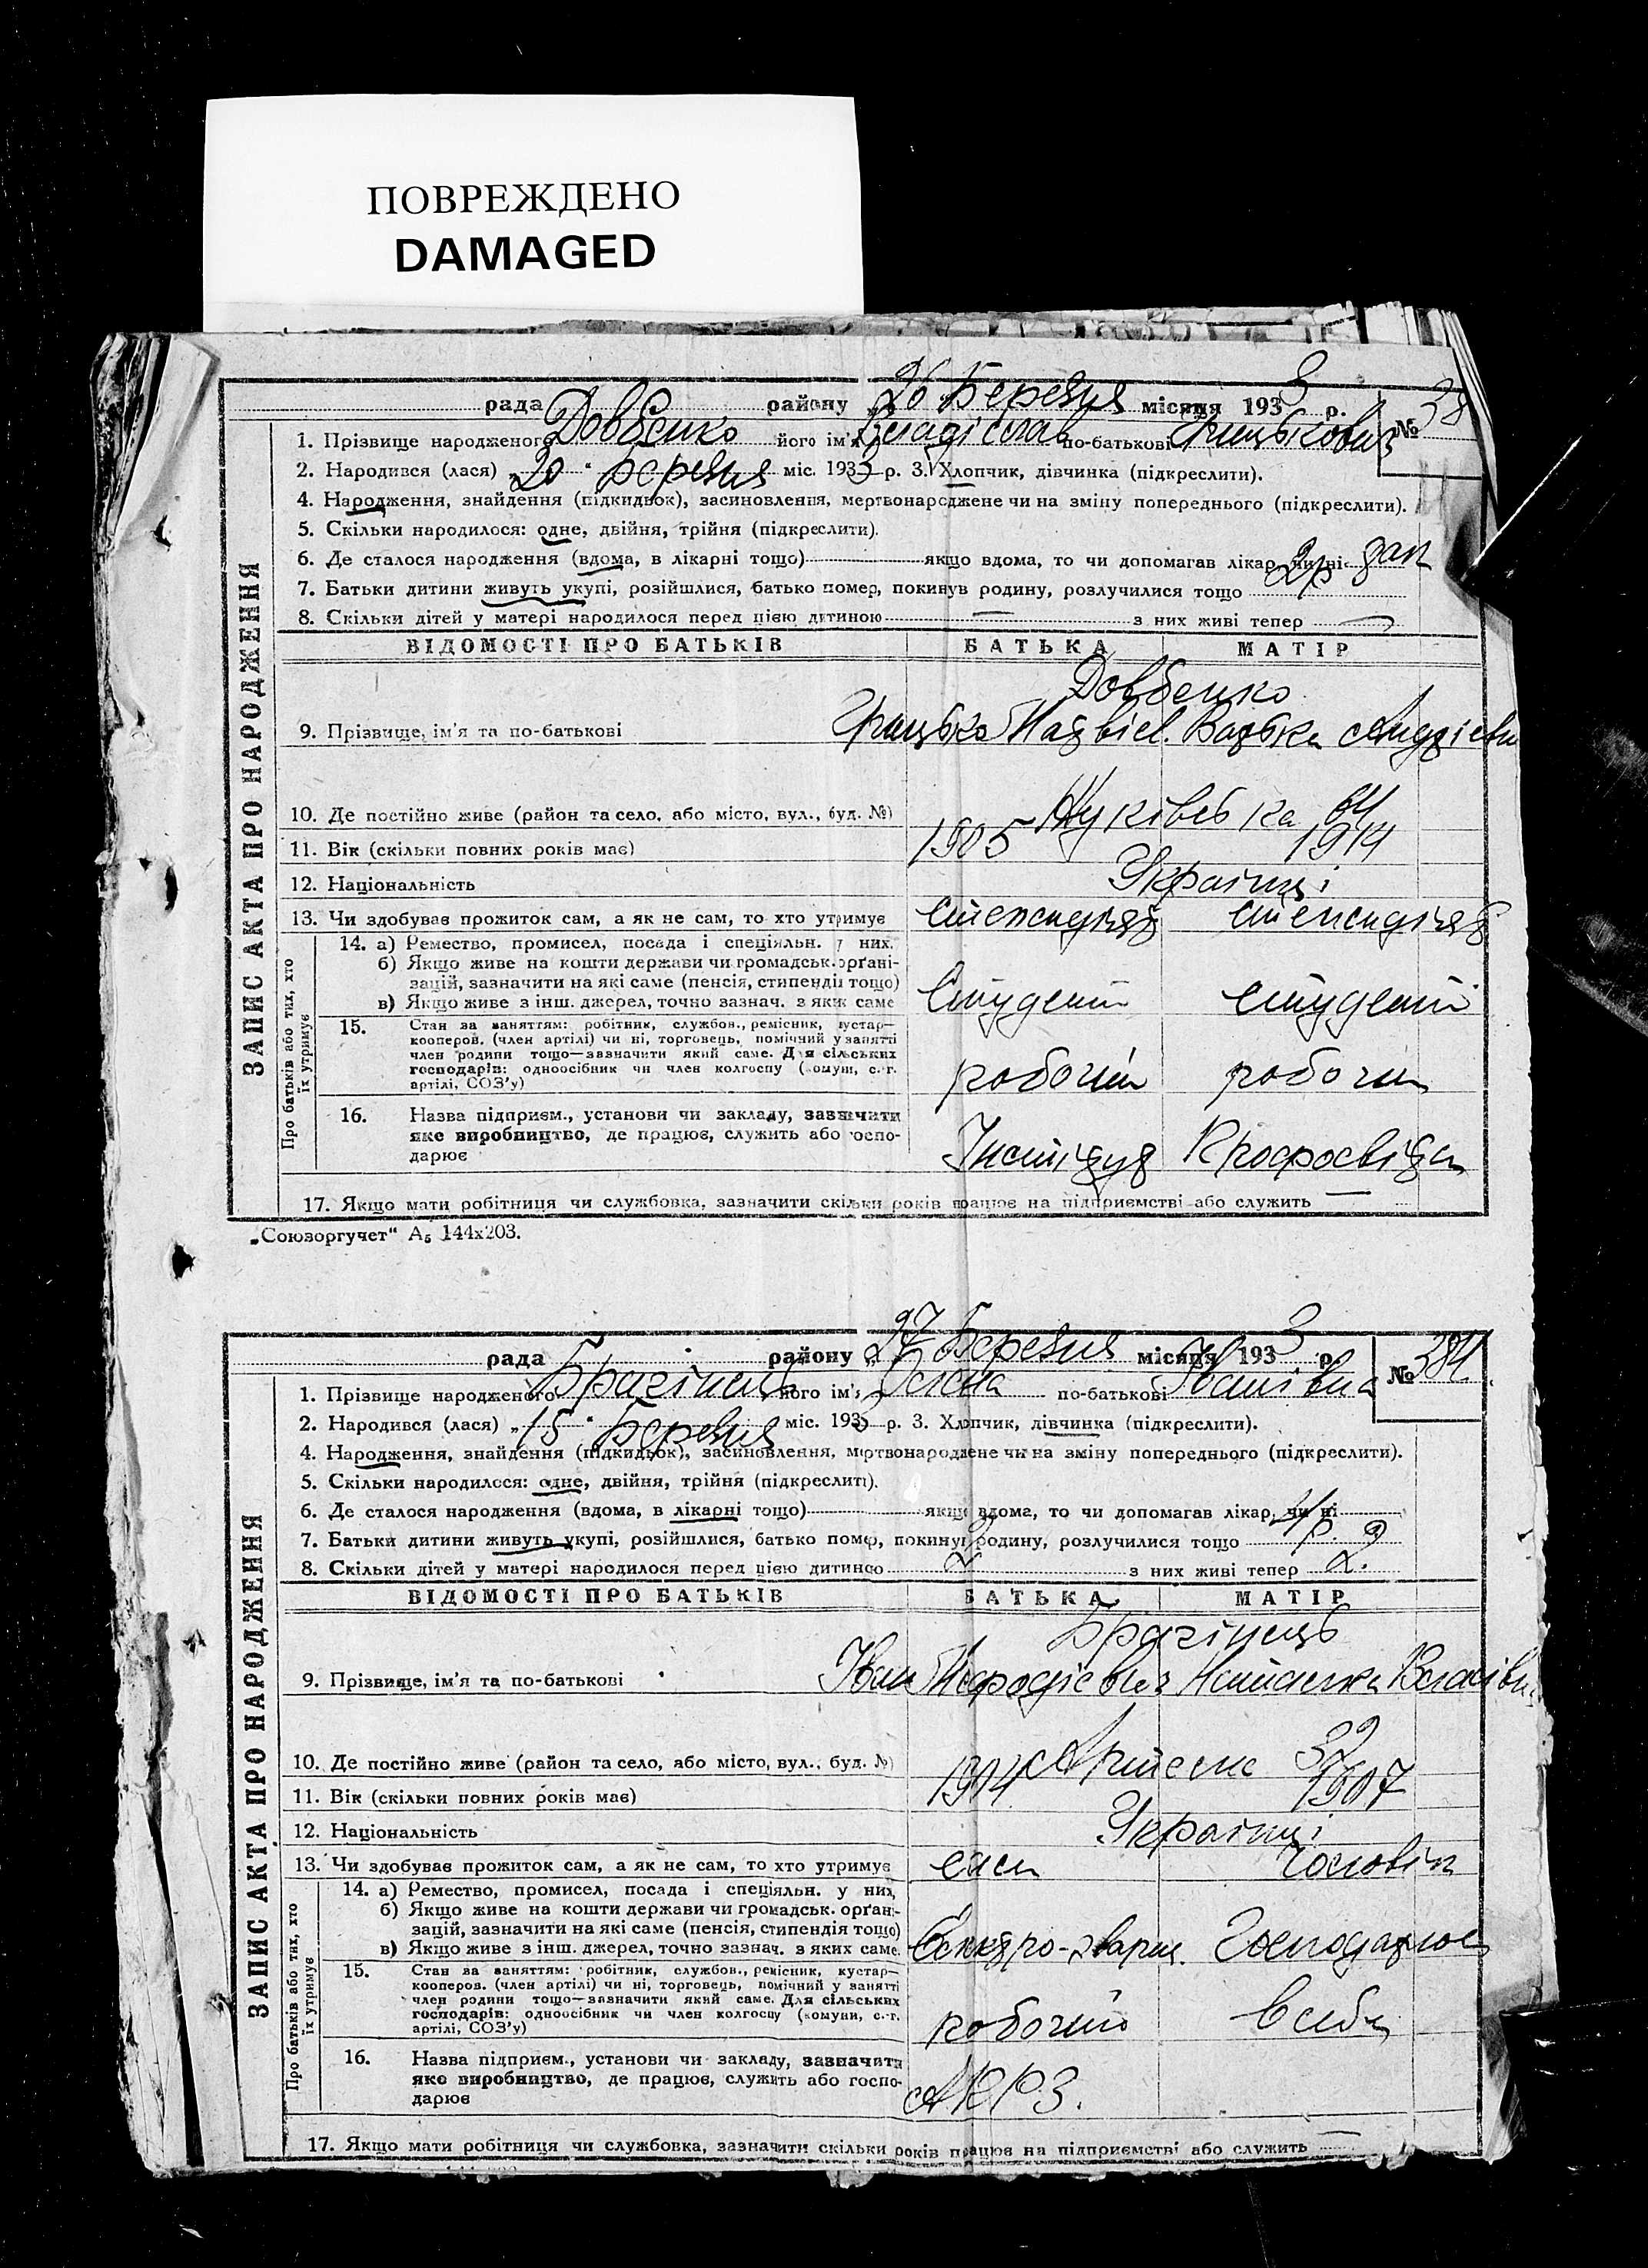 ПОВРЕЖДЕНО
DAMAGED
рада району „26 Березня місяця 1933 р. № 38
1. Прізвище народженого Довбенко його ім'я Владіслав по-батькові Грицькович
2. Народився (лася) „20" Березня міс. 1933 р. 3. Хлопчик, дівчинка (підкреслити).
4. Народження, знайдення (підкидьок), засиновлення, мертвонароджене чи на зміну попереднього (підкреслити).
5. Скільки народилося: одне, двійня, трійня (підкреслити).
6. Де сталося народження (вдома, в лікарні тощо) якщо вдома, то чи допомагав лікар, чи ні
7. Батьки дитини живуть укупі, розійшлися, батько помер, покинув родину, розлучилися тощо 2р
8. Скільки дітей у матері народилося перед цією дитиною — з них живі тепер —
ЗАПИС АКТА ПРО НАРОДЖЕННЯ
ВІДОМОСТІ ПРО БАТЬКІВ БАТЬКА МАТІР
Довбенко
9. Прізвище, ім'я та по-батькові Грицько Матвієв.
10. Де постійно живе (район та село, або місто, вул., буд. №) 64
11. Вік (скільки повних років має) 1905 1914
12. Національність Українці
13. Чи здобував прожиток сам, а як не сам, то хто утримує
Про батьків або тих, хто їх утримує
14. а) Ремество, промисел, посада і спеціяльн. у них.
б) Якщо живе на кошти держави чи громадськ. орґані-
зацій, зазначити на які саме (пенсія, стипендія тощо) Студент студент
в) Якщо живе з інш. джерел, точно зазнач. з яких саме
15. Стан за заняттям: робітник, службов., ремісник, кустар—
кооперов. (член артілі) чи ні, торговець, помічний у занятті
член родини тощо—зазначити який саме. Для сільських
господарів: одноосібник чи член колгоспу (комуни, с.-г. робочий робочий
артілі, СОЗ'у)
16. Назва підприєм., установи чи закладу, зазначити
яке виробництво, де працює, служить або госпо- Інститут
дарює
17. Якщо мати робітниця чи службовка, зазначити скільки років працює на підприємстві або служить —
„Союзоргучет" А₅ 144х203.
рада району „27 Березня місяця 1933 р. № 384.
1. Прізвище народженого Брагінець його ім'я Олена по-батькові Іванівна
2. Народився (лася) „15" Березня міс. 1933 р. 3. Хлопчик, дівчинка (підкреслити).
4. Народження, знайдення (підкидьок), засиновлення, мертвонароджене чи на зміну попереднього (підкреслити).
5. Скільки народилося: одне, двійня, трійня (підкреслити).
6. Де сталося народження (вдома, в лікарні тощо) якщо вдома, то чи допомагав лікар, чи ні
7. Батьки дитини живуть укупі, розійшлися, батько помер, покинув родину, розлучилися тощо
8. Скільки дітей у матері народилося перед цією дитиною 2 з них живі тепер 2.
ЗАПИС АКТА ПРО НАРОДЖЕННЯ
ВІДОМОСТІ ПРО БАТЬКІВ БАТЬКА МАТІР
Брагінець
9. Прізвище, ім'я та по-батькові Іван Наталка Власівна
10. Де постійно живе (район та село, або місто, вул., буд. №) Артема 39
11. Вік (скільки повних років має) 1904 1907
12. Національність Українці
13. Чи здобував прожиток сам, а як не сам, то хто утримує сам чоловік
Про батьків або тих, хто їх утримує
14. а) Ремество, промисел, посада і спеціяльн. у них,
б) Якщо живе на кошти держави чи громадськ. орґані-
зацій, зазначити на які саме (пенсія, стипендія тощо)
в) Якщо живе з інш. джерел, точно зазнач. з яких саме.
15. Стан за заняттям: робітник, службов., ремісник, кустар—
кооперов. (член артілі) чи ні, торговець, помічний у занятті
член родини тощо—зазначити який саме. Для сільських
господарів: одноосібник чи член колгоспу (комуни, с.-г. робочий
артілі, СОЗ'у)
16. Назва підприєм., установи чи закладу, зазначити
яке виробництво, де працює, служить або госпо-
дарює
17. Якщо мати робітниця чи службовка, зазначити скільки років працює на підприємстві або служить —